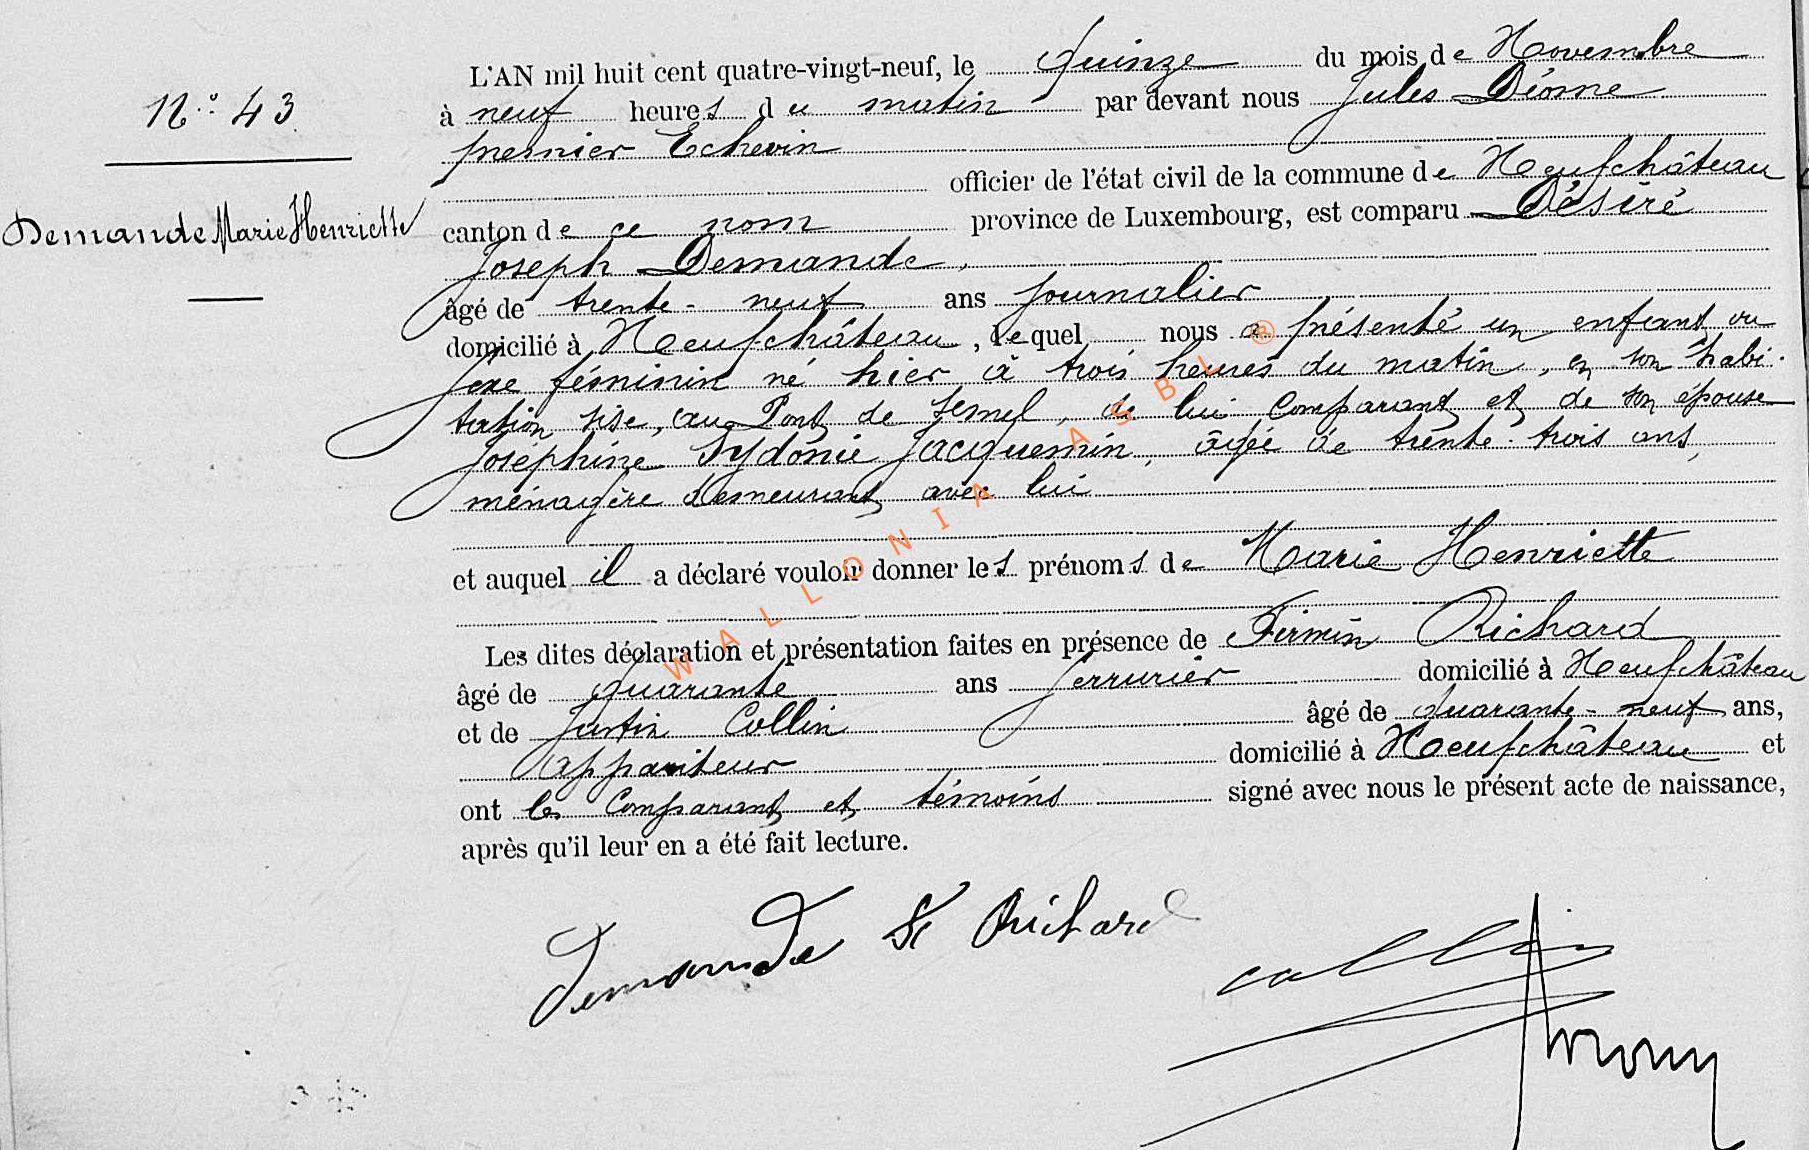 N.° 43
Demande Marie Henriette
L'AN mil huit cent quatre-vingt-neuf, le Quinze du mois de Novembre
à neuf heures du matin par devant nous Jules Dionne
premier Echevin
officier de l'état civil de la commune de Neufchâteau
canton de ce nom province de Luxembourg, est comparu Désiré
Joseph Demande,
âgé de trente-neuf ans journalier
domicilié à Neufchâteau, lequel nous a présenté un enfant du
sexe féminin né hier à trois heures du matin, en son habi-
tation sise, au Pont de, de lui comparant et de son épouse
Joséphine Sydonie Jacquemin, âgée de trente-trois ans,
ménagère demeurant avec lui
et auquel il a déclaré vouloir donner les prénoms de Marie Henriette
Les dites déclaration et présentation faites en présence de Firmin Richard
âgé de quarante ans serrurier domicilié à Neufchâteau
et de Justin Collin âgé de quarante-neuf ans,
appariteur domicilié à Neufchâteau et
ont les comparant et témoins signé avec nous le présent acte de naissance,
après qu'il leur en a été fait lecture.
Demande Richard
collin
WALLONIA ASBL ®